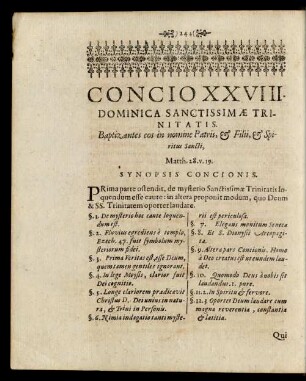 242
CONCIO XXVIII.
DOMINICA SANCTISSIMÆ TRI-
NITATIS.
Baptizantes eos in nomine Patris, & Filii, & Spi-
ritus Sancti,
Matth. 28. v. 19.
SYNOPSIS CONCIONIS.
PRima parte ostendit, de mysterio Sanctissimæ Trinitatis lo-
quendum esse cautè: in altera proponit modum, quo Deum
& SS. Trinitatem oporteat laudare.
§. 1. De mysterio hoc cautè loquen-
dum est.
§. 2. Fluvius egrediens è templo,
Ezech. 47. fuit symbolum my-
steriorum fidei.
§. 3. Prima Veritas est, esse Deum,
quem tamen gentiles ignorant.
§. 4. In lege Moysis, clarior fuit
Dei cognitio.
§. 5. Longè clariorem prædicavit
Christus D. Dei unius in natu-
ra, & Trini in Personis.
§. 6. Nimia indagatio tanti myste-
rii est periculosa.
§. 7. Elegans monitum Seneca
§. 8. Et S. Dionysii Areopagi-
tæ.
§. 9. Altera pars Concionis. Homo
à Deo creatus est ut eundem lau-
det.
§. 10. Quomodo Deus à nobis sit
laudandus. 1. purè.
§. 11. 2. In Spiritu & fervore.
§. 12. 3. Oportet Deum laudare cum
magna reverentia, constantia
& lætitia.
Qui